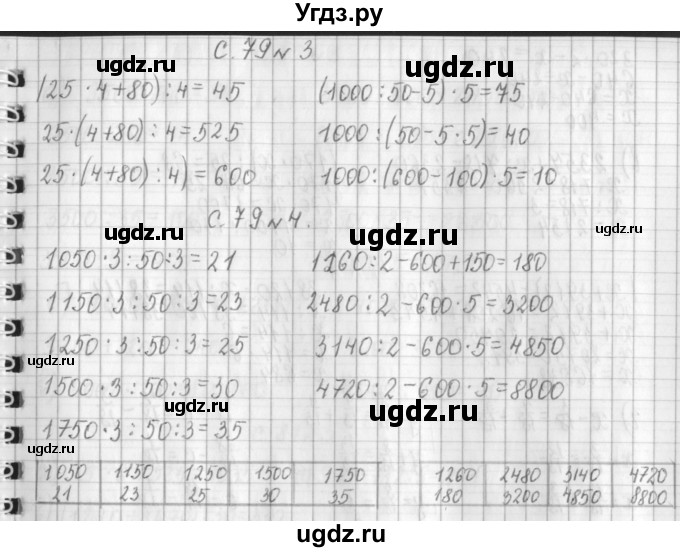 Угдз.ру
с. 79 № 3
(25 · 4 + 80) : 4 = 45
25 · (4 + 80) : 4 = 525
25 · (4 + 80) : 4) = 600
(1000 : 50 - 5) · 5 = 75
1000 : (50 - 5 · 5) = 40
1000 : (600 - 100) · 5 = 10
с. 79 № 4.
1050 · 3 : 50 : 3 = 21
1150 · 3 : 50 : 3 = 23
1250 · 3 : 50 : 3 = 25
1500 · 3 : 50 : 3 = 30
1750 · 3 : 50 : 3 = 35
1260 : 2 - 600 + 150 = 180
2480 : 2 - 600 · 5 = 3200
3140 : 2 - 600 · 5 = 4850
4720 : 2 - 600 · 5 = 8800
1050 1150 1250 1500 1750
21 23 25 30 35
1260 2480 3140 4720
180 3200 4850 8800
ugdz.ru
ugdz.ru
ugdz.ru
ugdz.ru
ugdz.ru
ugdz.ru
ugdz.ru
ugdz.ru
ugdz.ru
ugdz.ru
ugdz.ru
ugdz.ru